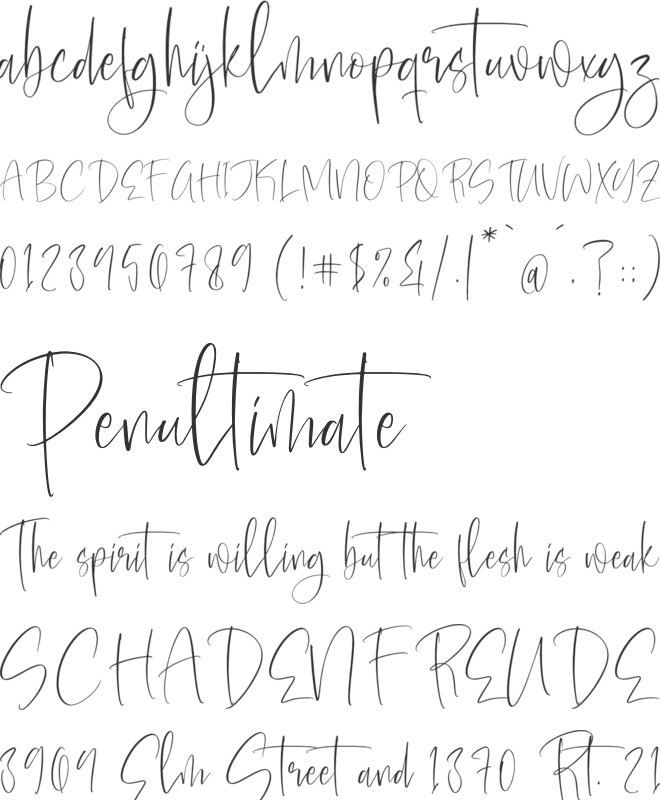 abcdefghijklmnopqrstuvwxyz
ABCDEFGHIJKLMNOPQRSTUVWXYZ
0123456789 (!#$%&/.|*` @ ´ . ? : : )
Penultimate
The spirit is willing but the flesh is weak
SCHADENFREUDE
3909 Elm Street and 1370 Rt. 21